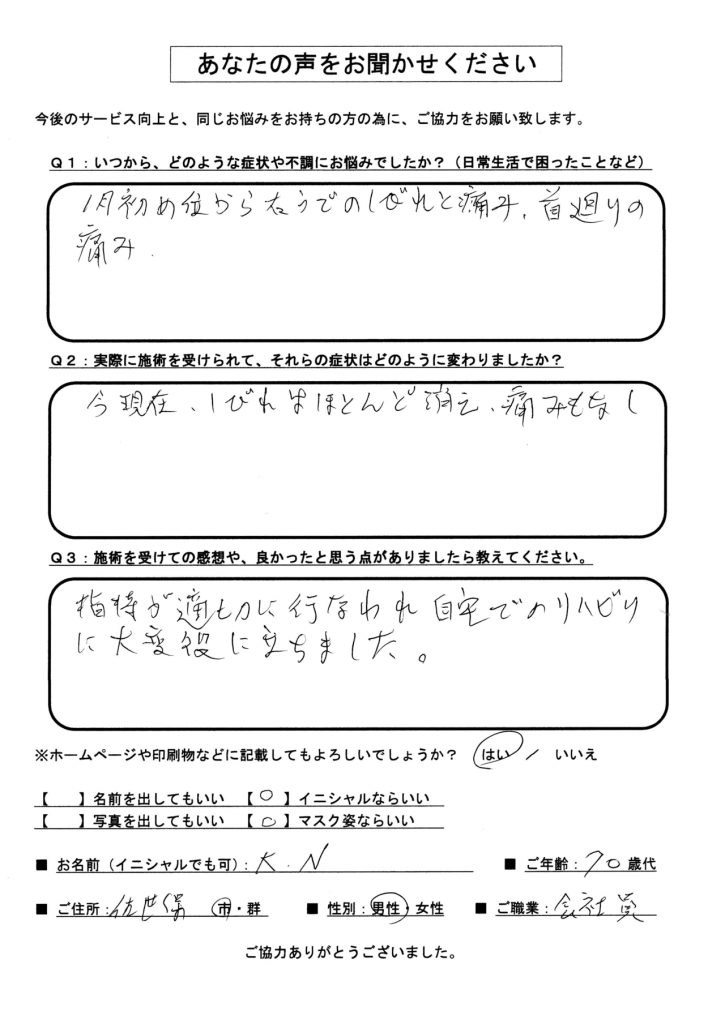 あなたの声をお聞かせください
今後のサービス向上と、同じお悩みをお持ちの方の為に、ご協力をお願い致します。
Q1：いつから、どのような症状や不調にお悩みでしたか？（日常生活で困ったことなど）
1月初め位から右うでのしびれと痛み、首廻りの
痛み.
Q2：実際に施術を受けられて、それらの症状はどのように変わりましたか？
今現在、しびれはほとんど消え、痛みもなし
Q3：施術を受けての感想や、良かったと思う点がありましたら教えてください。
指導が適切に行なわれ自宅でのリハビリ
に大変役に立ちました。
※ホームページや印刷物などに記載してもよろしいでしょうか？　はい ／ いいえ
【　】名前を出してもいい　【○】イニシャルならいい
【　】写真を出してもいい　【○】マスク姿ならいい
■ お名前（イニシャルでも可）：K.N　■ ご年齢：70歳代
■ ご住所：佐世保 市・群　■ 性別：男性・女性　■ ご職業：会社員
ご協力ありがとうございました。